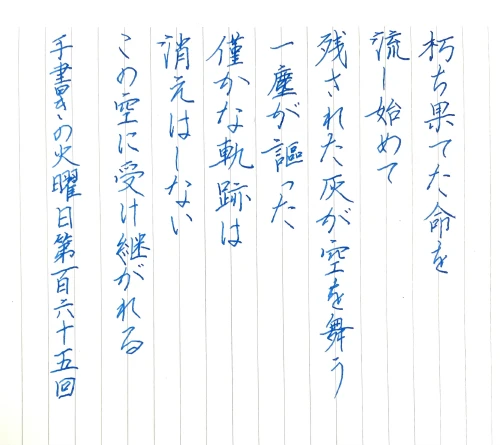 朽ち果てた命を
流し始めて
残された灰が空を舞う
一塵が謳った
僅かな軌跡は
消えはしない
この空に受け継がれる
手書きの火曜日第百六十五回